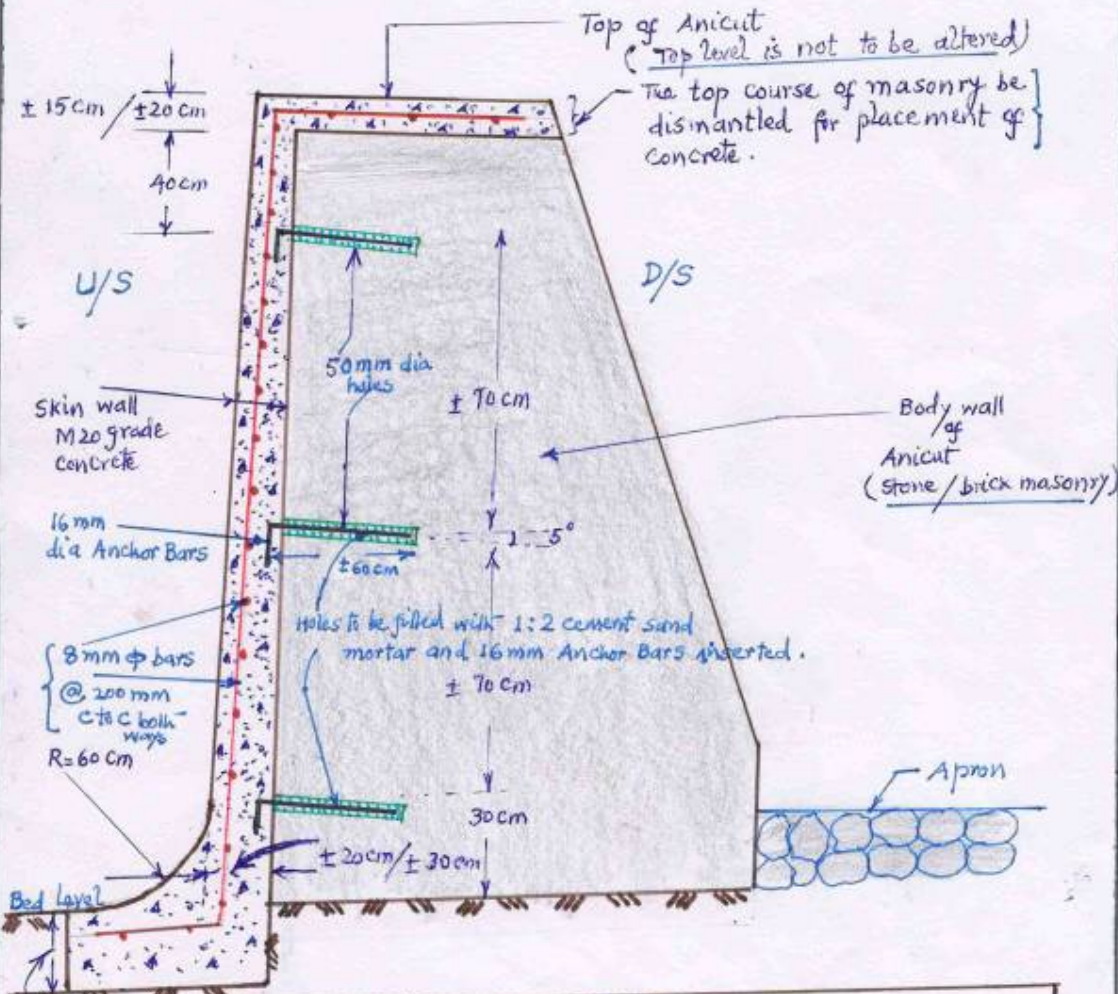 Top of Anicut
( Top level is not to be altered)
± 15 cm / ± 20 cm
The top course of masonry be
dismantled for placement of
concrete.
40 cm
U/S
D/S
50 mm dia
holes
± 70 cm
Skin wall
M20 grade
concrete
Body wall
of
Anicut
(stone / brick masonry)
16 mm
dia Anchor Bars
5°
± 60 cm
Holes to be filled with 1:2 cement sand
mortar and 16 mm Anchor Bars inserted.
8 mm ϕ bars
@ 200 mm
C to C both
ways
± 70 cm
R = 60 cm
Apron
30 cm
± 20 cm / ± 30 cm
Bed Level